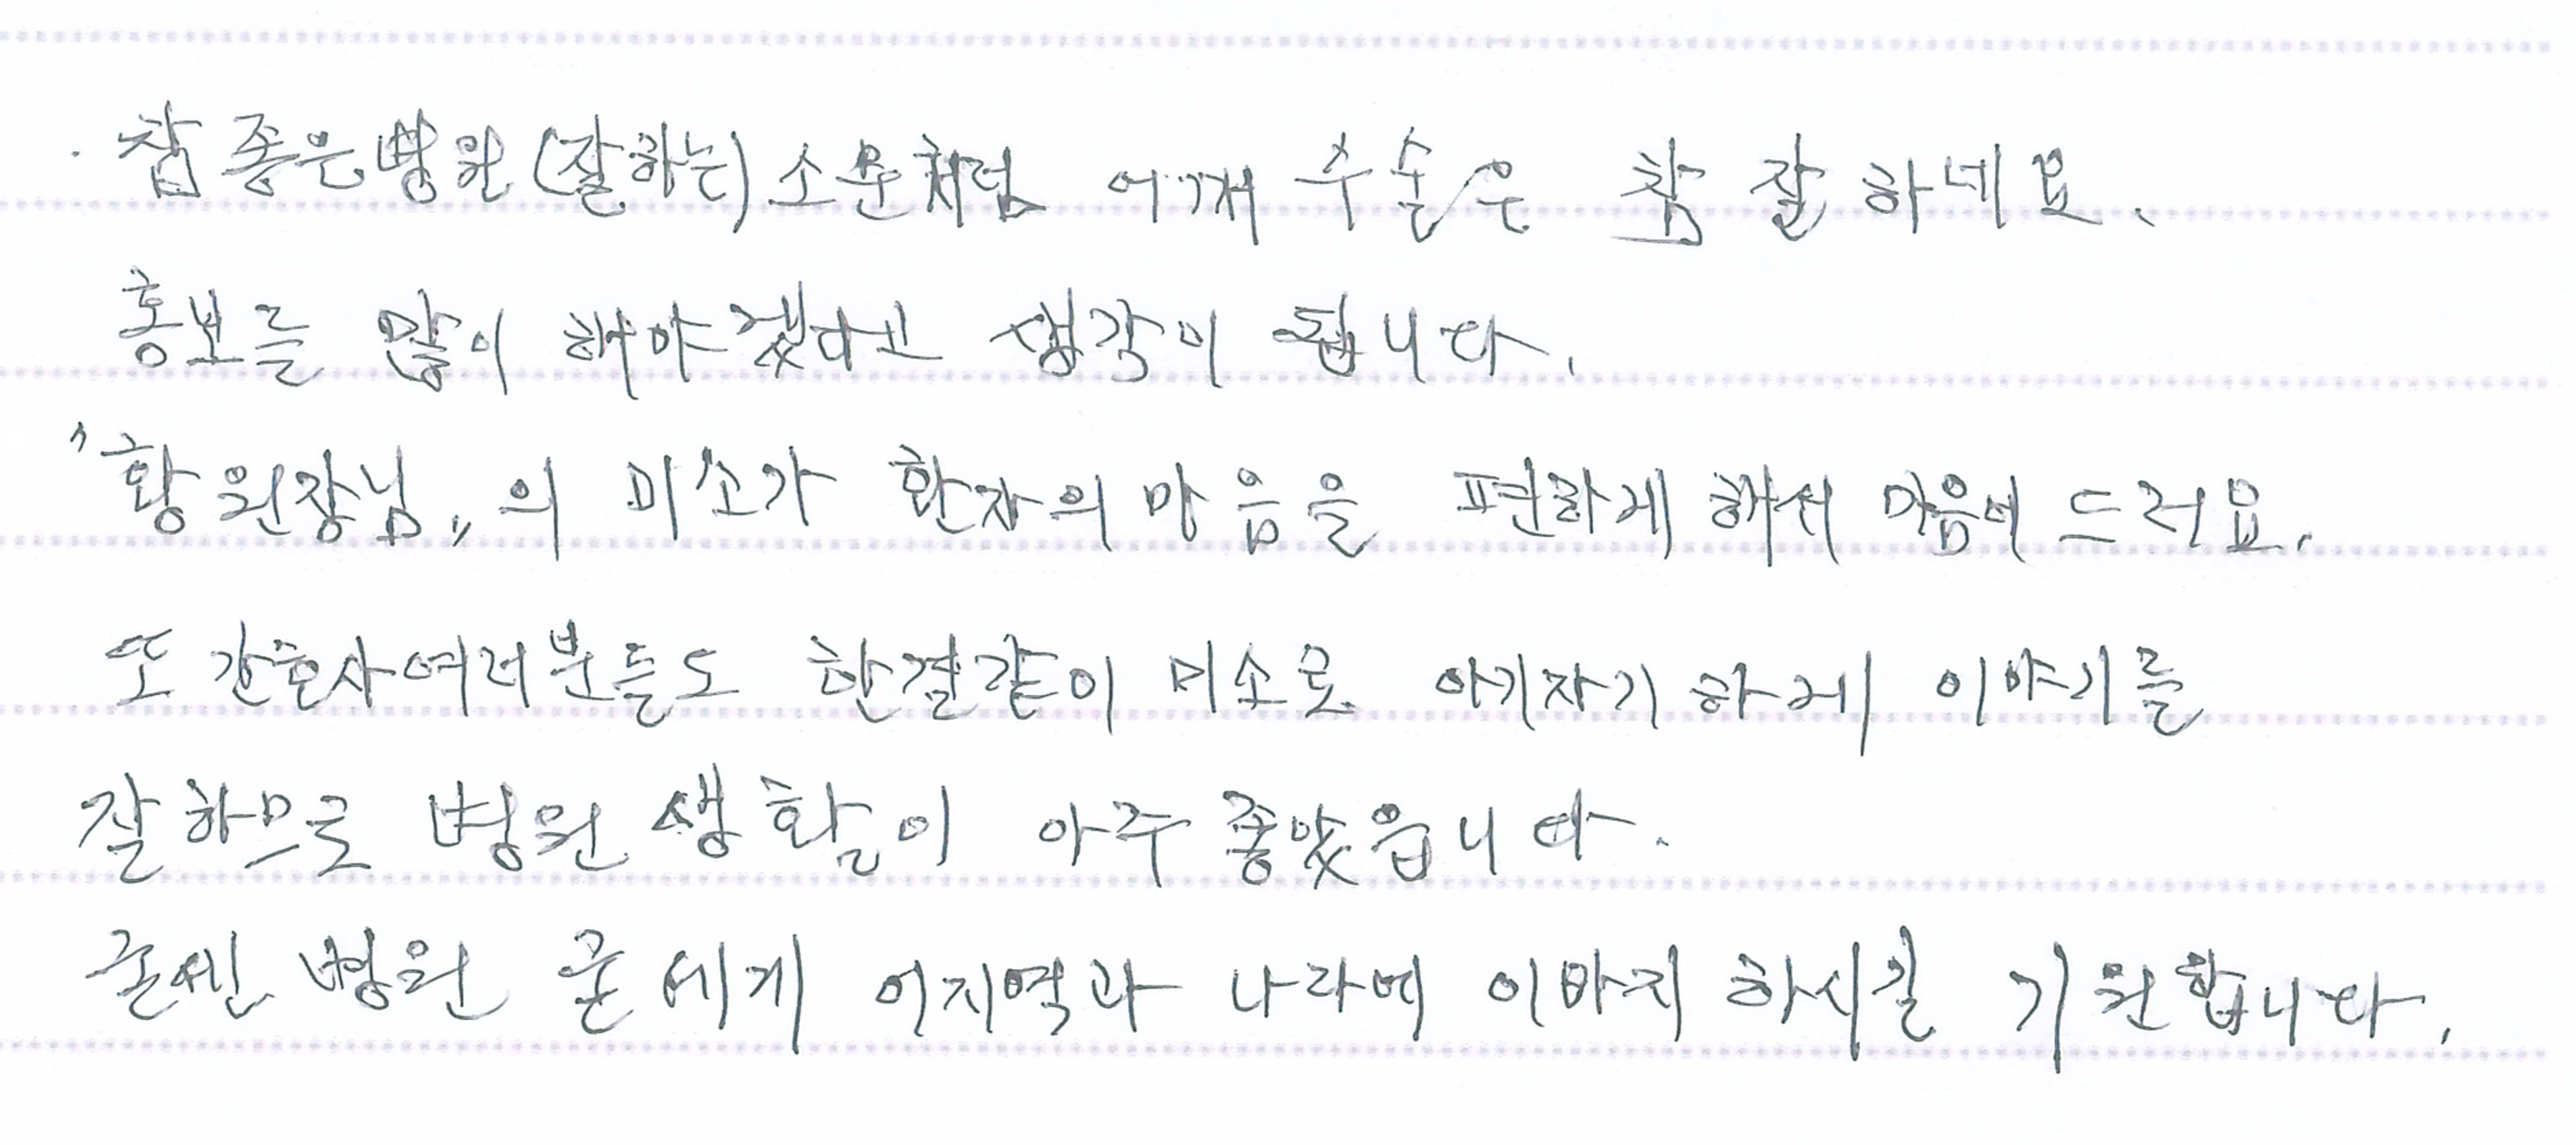 · 참 좋은 병원 (잘하는) 소문처럼 어깨 수술은 참 잘 하네요.
홍보를 많이 해야겠다고 생각이 됩니다.
"황원장님"의 미소가 환자의 마음을 편하게 해서 마음에 드러요.
또 간호사 여러분들도 한결같이 미소로 아기자기 하게 이야기를
잘 하므로 병원 생활이 아주 좋았읍니다.
굳센 병원 굳세게 이지역과 나라에 이바지 하시길 기원합니다.